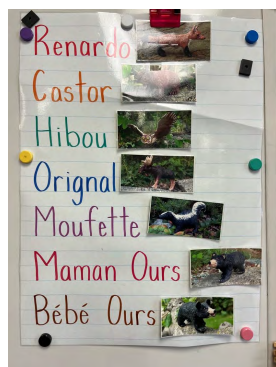 Renardo
Castor
Hibou
Orignal
Moufette
Maman Ours
Bébé Ours